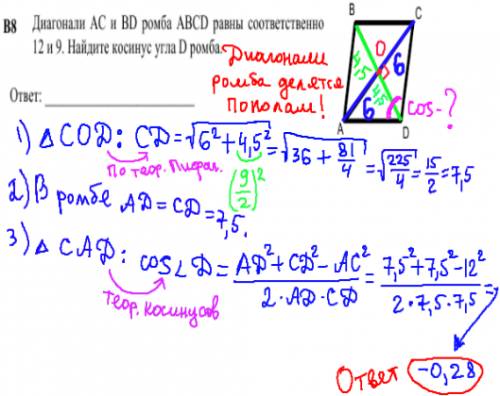 B8 Диагонали AC и BD ромба ABCD равны соответственно
12 и 9. Найдите косинус угла D ромба.
Ответ:
Диагонали
ромба делятся
пополам!
B C
O
4,5 6
4,5
6 cos-?
A D
1) △COD: CD = √(6² + 4,5²) = √(36 + 81/4) = √(225/4) = 15/2 = 7,5
По теор. Пифаг.
(9/2)²
2) В ромбе AD = CD = 7,5.
3) △CAD: cos∠D = (AD² + CD² − AC²)/(2·AD·CD) = (7,5² + 7,5² − 12²)/(2·7,5·7,5) =
Теор. косинусов
Ответ -0,28